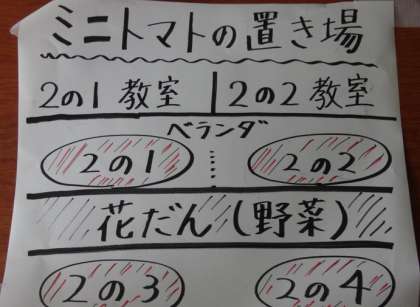 ミニトマトの置き場
2の1 教室 2の2 教室
ベランダ
2の1 2の2
花だん(野菜)
2の3 2の4